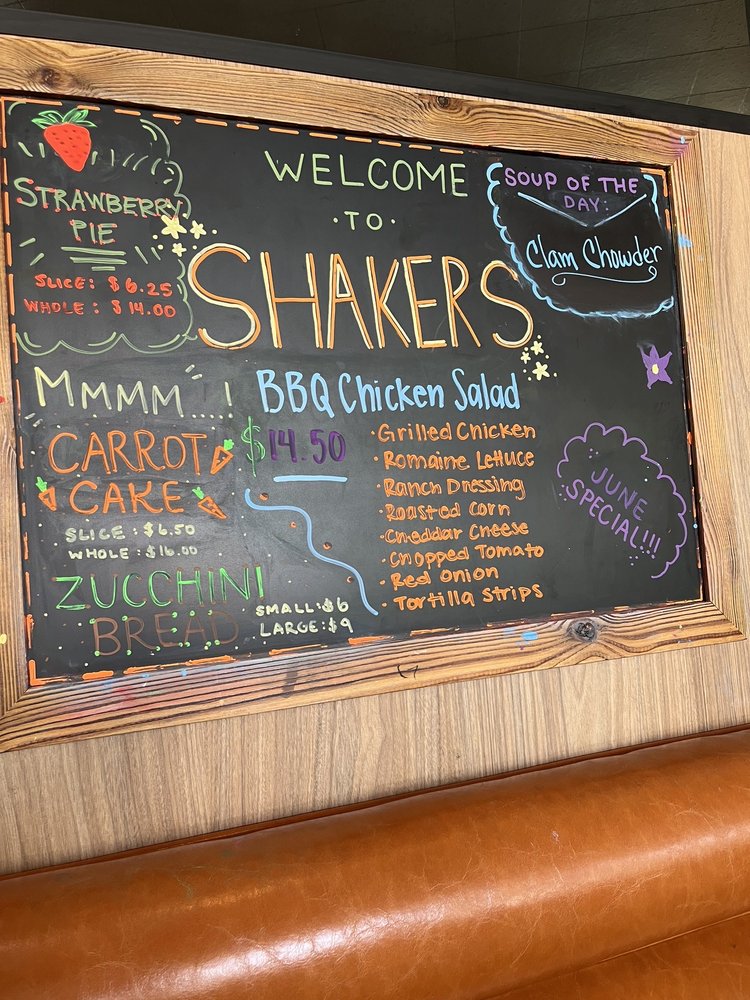 STRAWBERRY
PIE
SLICE: $6.25
WHOLE: $14.00
WELCOME
·TO·
SHAKERS
SOUP OF THE
DAY:
Clam Chowder
MMMM....!
CARROT
CAKE
SLICE: $6.50
WHOLE: $16.00
ZUCCHINI
BREAD
SMALL: $6
LARGE: $9
BBQ Chicken Salad
$14.50
·Grilled Chicken
·Romaine Lettuce
·Ranch Dressing
·Roasted Corn
·Cheddar Cheese
·Chopped Tomato
·Red Onion
·Tortilla Strips
JUNE
SPECIAL!!!